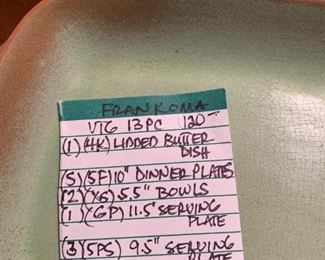 FRANKOMA
VTG 13PC 120-
(1)(4K) LIDDED BUTTER
DISH
(5)(5F) 10" DINNER PLATES
(2)(XS) 5.5" BOWLS
(1)(GP) 11.5" SERVING
PLATE
(3)(5PS) 9.5" SERVING
PLATE